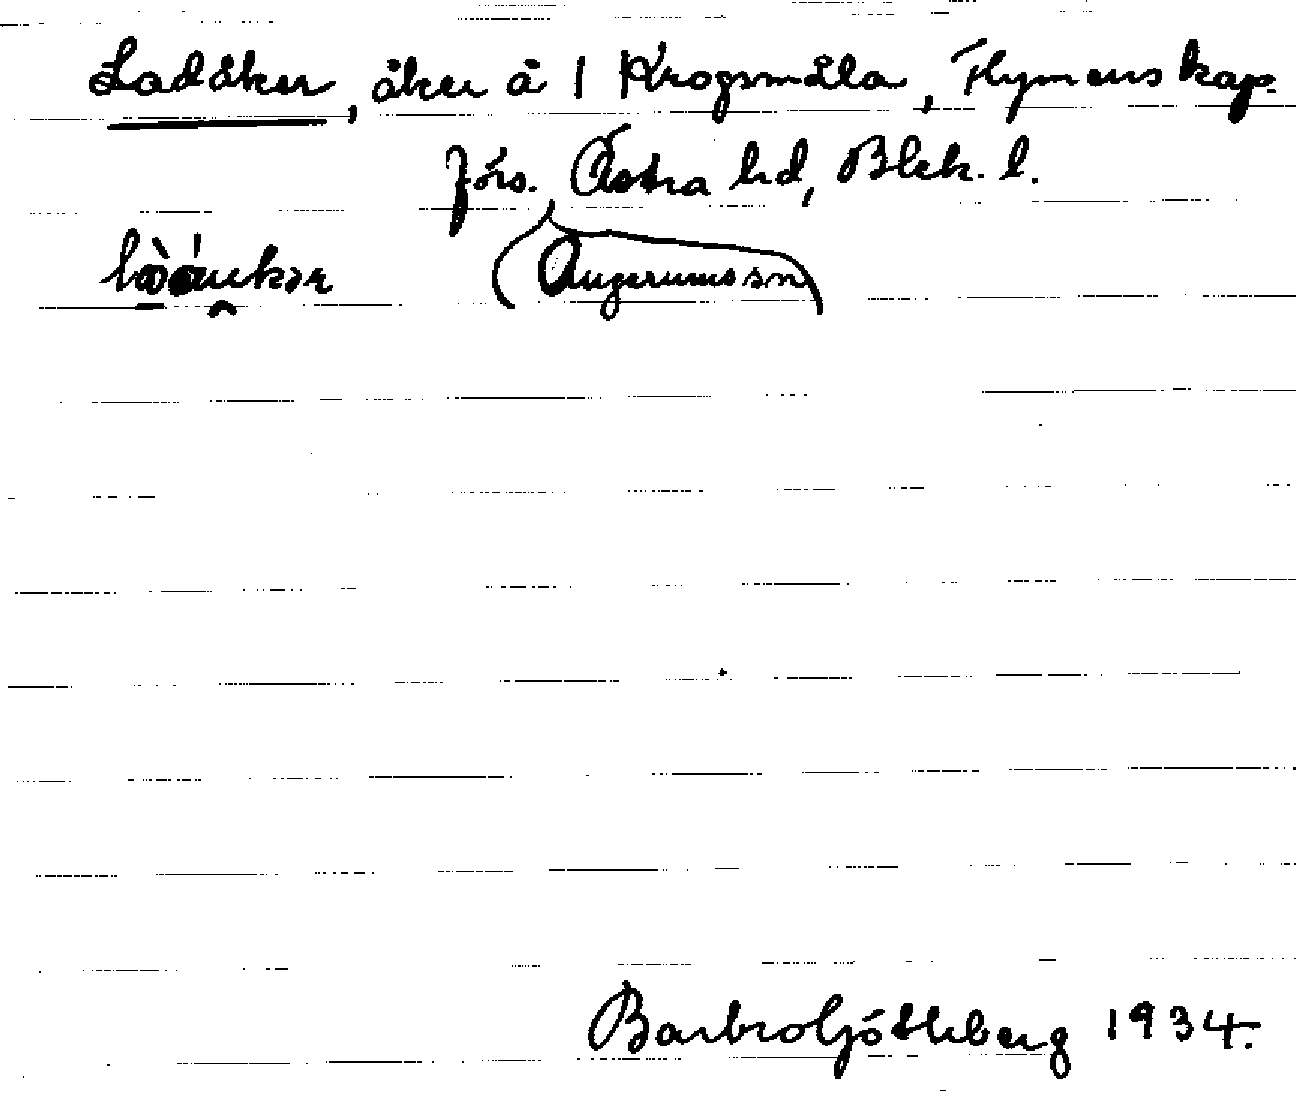 Ladåker, åker å 1 Krogsmåla, Flymens kap.
förs. Östra hd, Blek. l.
(Augerums sn)
Barbro Götheberg 1934.